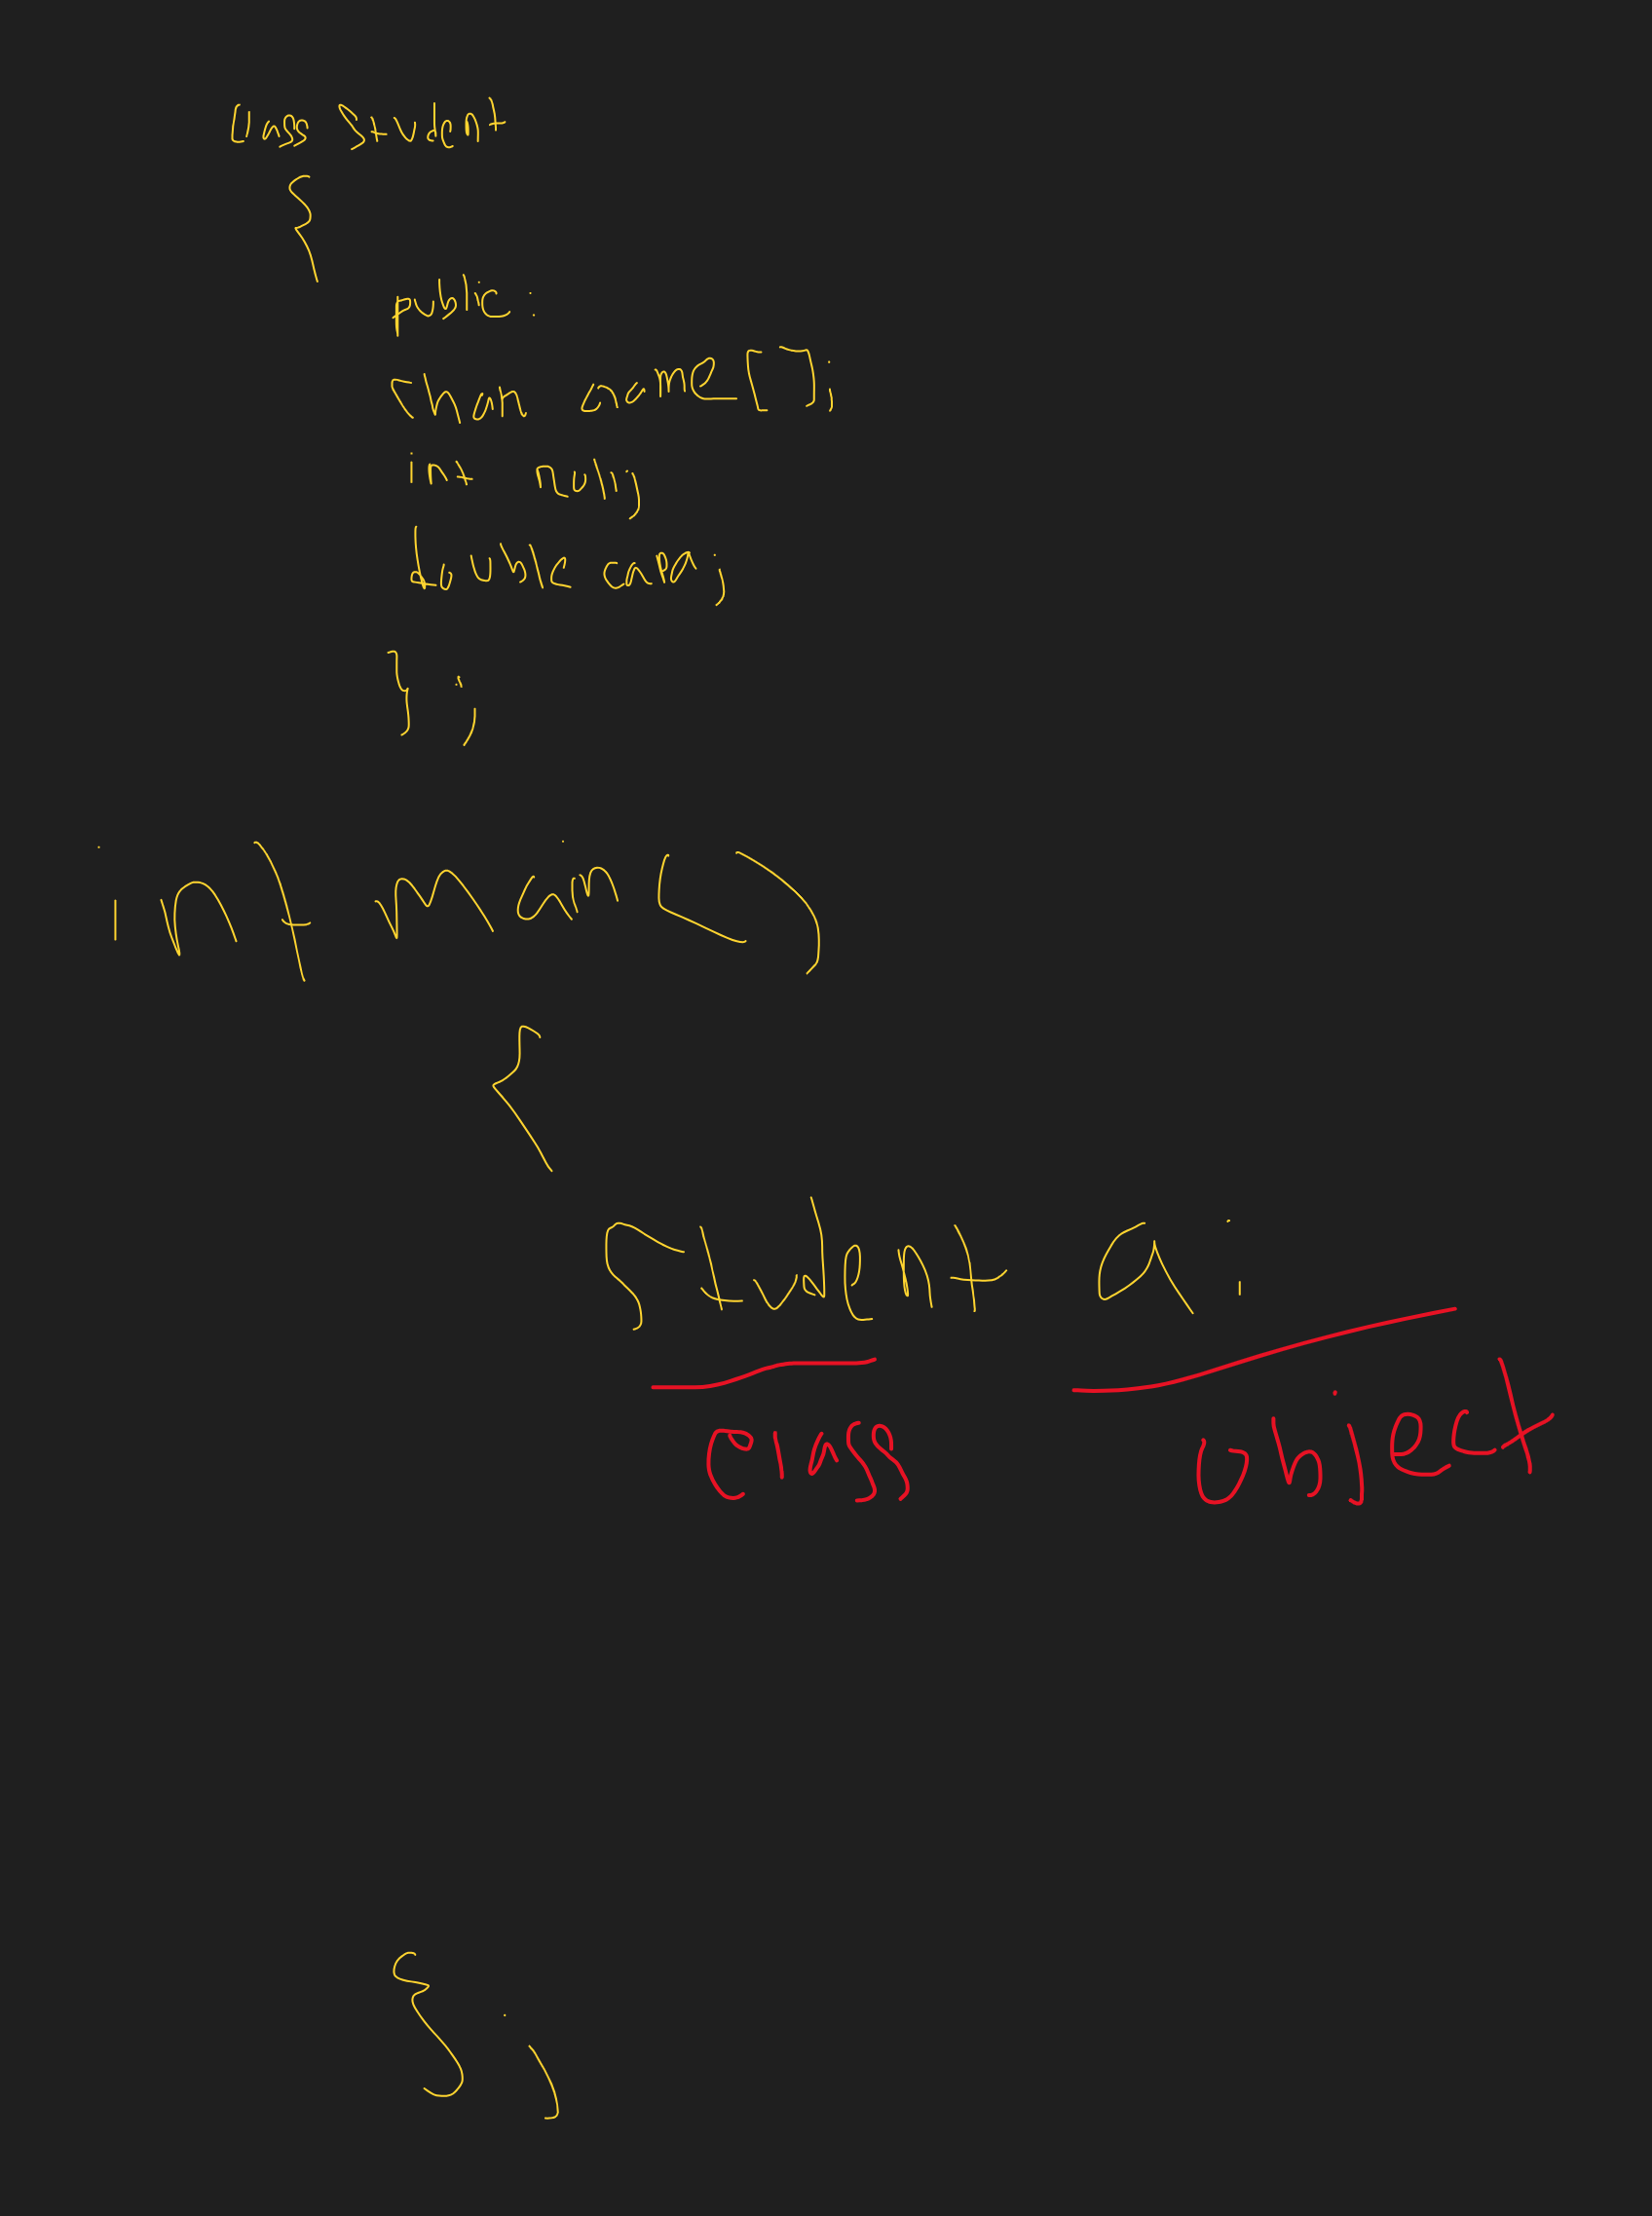 Class Student
{
public:
char name[];
int roll;
double cgpa;
};
int main()
{
Student a;
class object
};